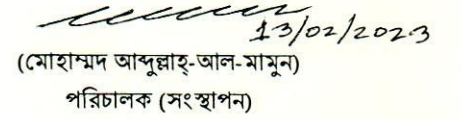 13/02/2023
(মোহাম্মদ আব্দুল্লাহ্-আল-মামুন)
পরিচালক (সংস্থাপন)